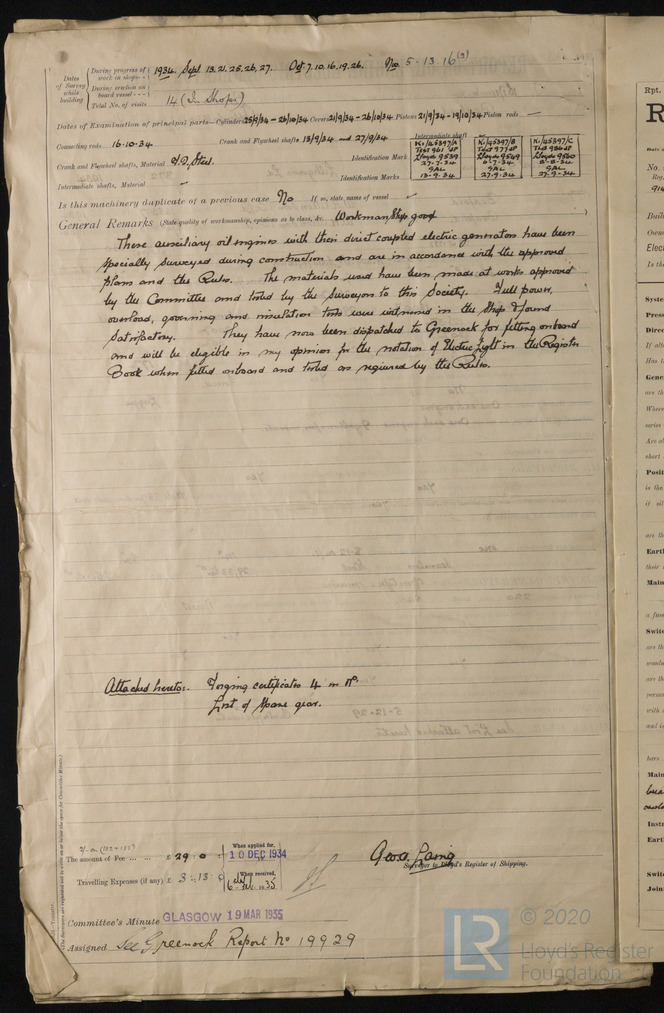 Dates of Survey while building
During progress of work in shops - - 1934. Sept 13. 21. 25. 26. 27. Oct 7. 10. 16. 19. 26. No 5 - 13. 16 (3)
During erection on board vessel - - -
Total No. of visits 14 (In Shops)
Dates of Examination of principal parts—Cylinders 25/9/34 - 26/10/34 Covers 21/9/34 - 26/10/34 Pistons 21/9/34 - 19/10/34 Piston rods -
Connecting rods 16.10.34 Crank and Flywheel shafts 13/9/34 and 27/9/34 Intermediate shaft
Crank and Flywheel shafts, Material O.H. Steel. Identification Mark
Intermediate shafts, Material Identification Marks
No/45397/A
Lloyds 9539
27.7.34
GAL
13.9.34
No/45397/B
Lloyds 9549
6.7.34
GAL
27.9.34
No/45397/C
Lloyds 9560
8.8.34
GAL
27.9.34
Is this machinery duplicate of a previous case No If so, state name of vessel
General Remarks (State quality of workmanship, opinions as to class, &c. Workmanship good)
These auxiliary oil engines with their direct coupled electric generators have been
specially surveyed during construction and are in accordance with the approved
plans and the Rules. The materials used have been made at works approved
by the Committee and tested by the Surveyors to this Society. Full power,
overload, governing and insulation tests were witnessed in the Shop & found
satisfactory. They have now been dispatched to Greenock for fitting onboard
and will be eligible in my opinion for the notation of Electric Light in the Register
Book when fitted onboard and tested as required by the Rules.
Attached hereto:. Forging certificates 4 in No.
List of spare gear.
The amount of Fee ... ... £ 29 : 0 :
When applied for, 10 DEC 1934
Travelling Expenses (if any) £ 3 : 13 : 0
When received,
Geo. A. Laing
Surveyor to Lloyd's Register of Shipping.
Committee's Minute GLASGOW 19 MAR 1935
Assigned See Greenock Report No 19929
LR
© 2020
Lloyd's Register
Foundation